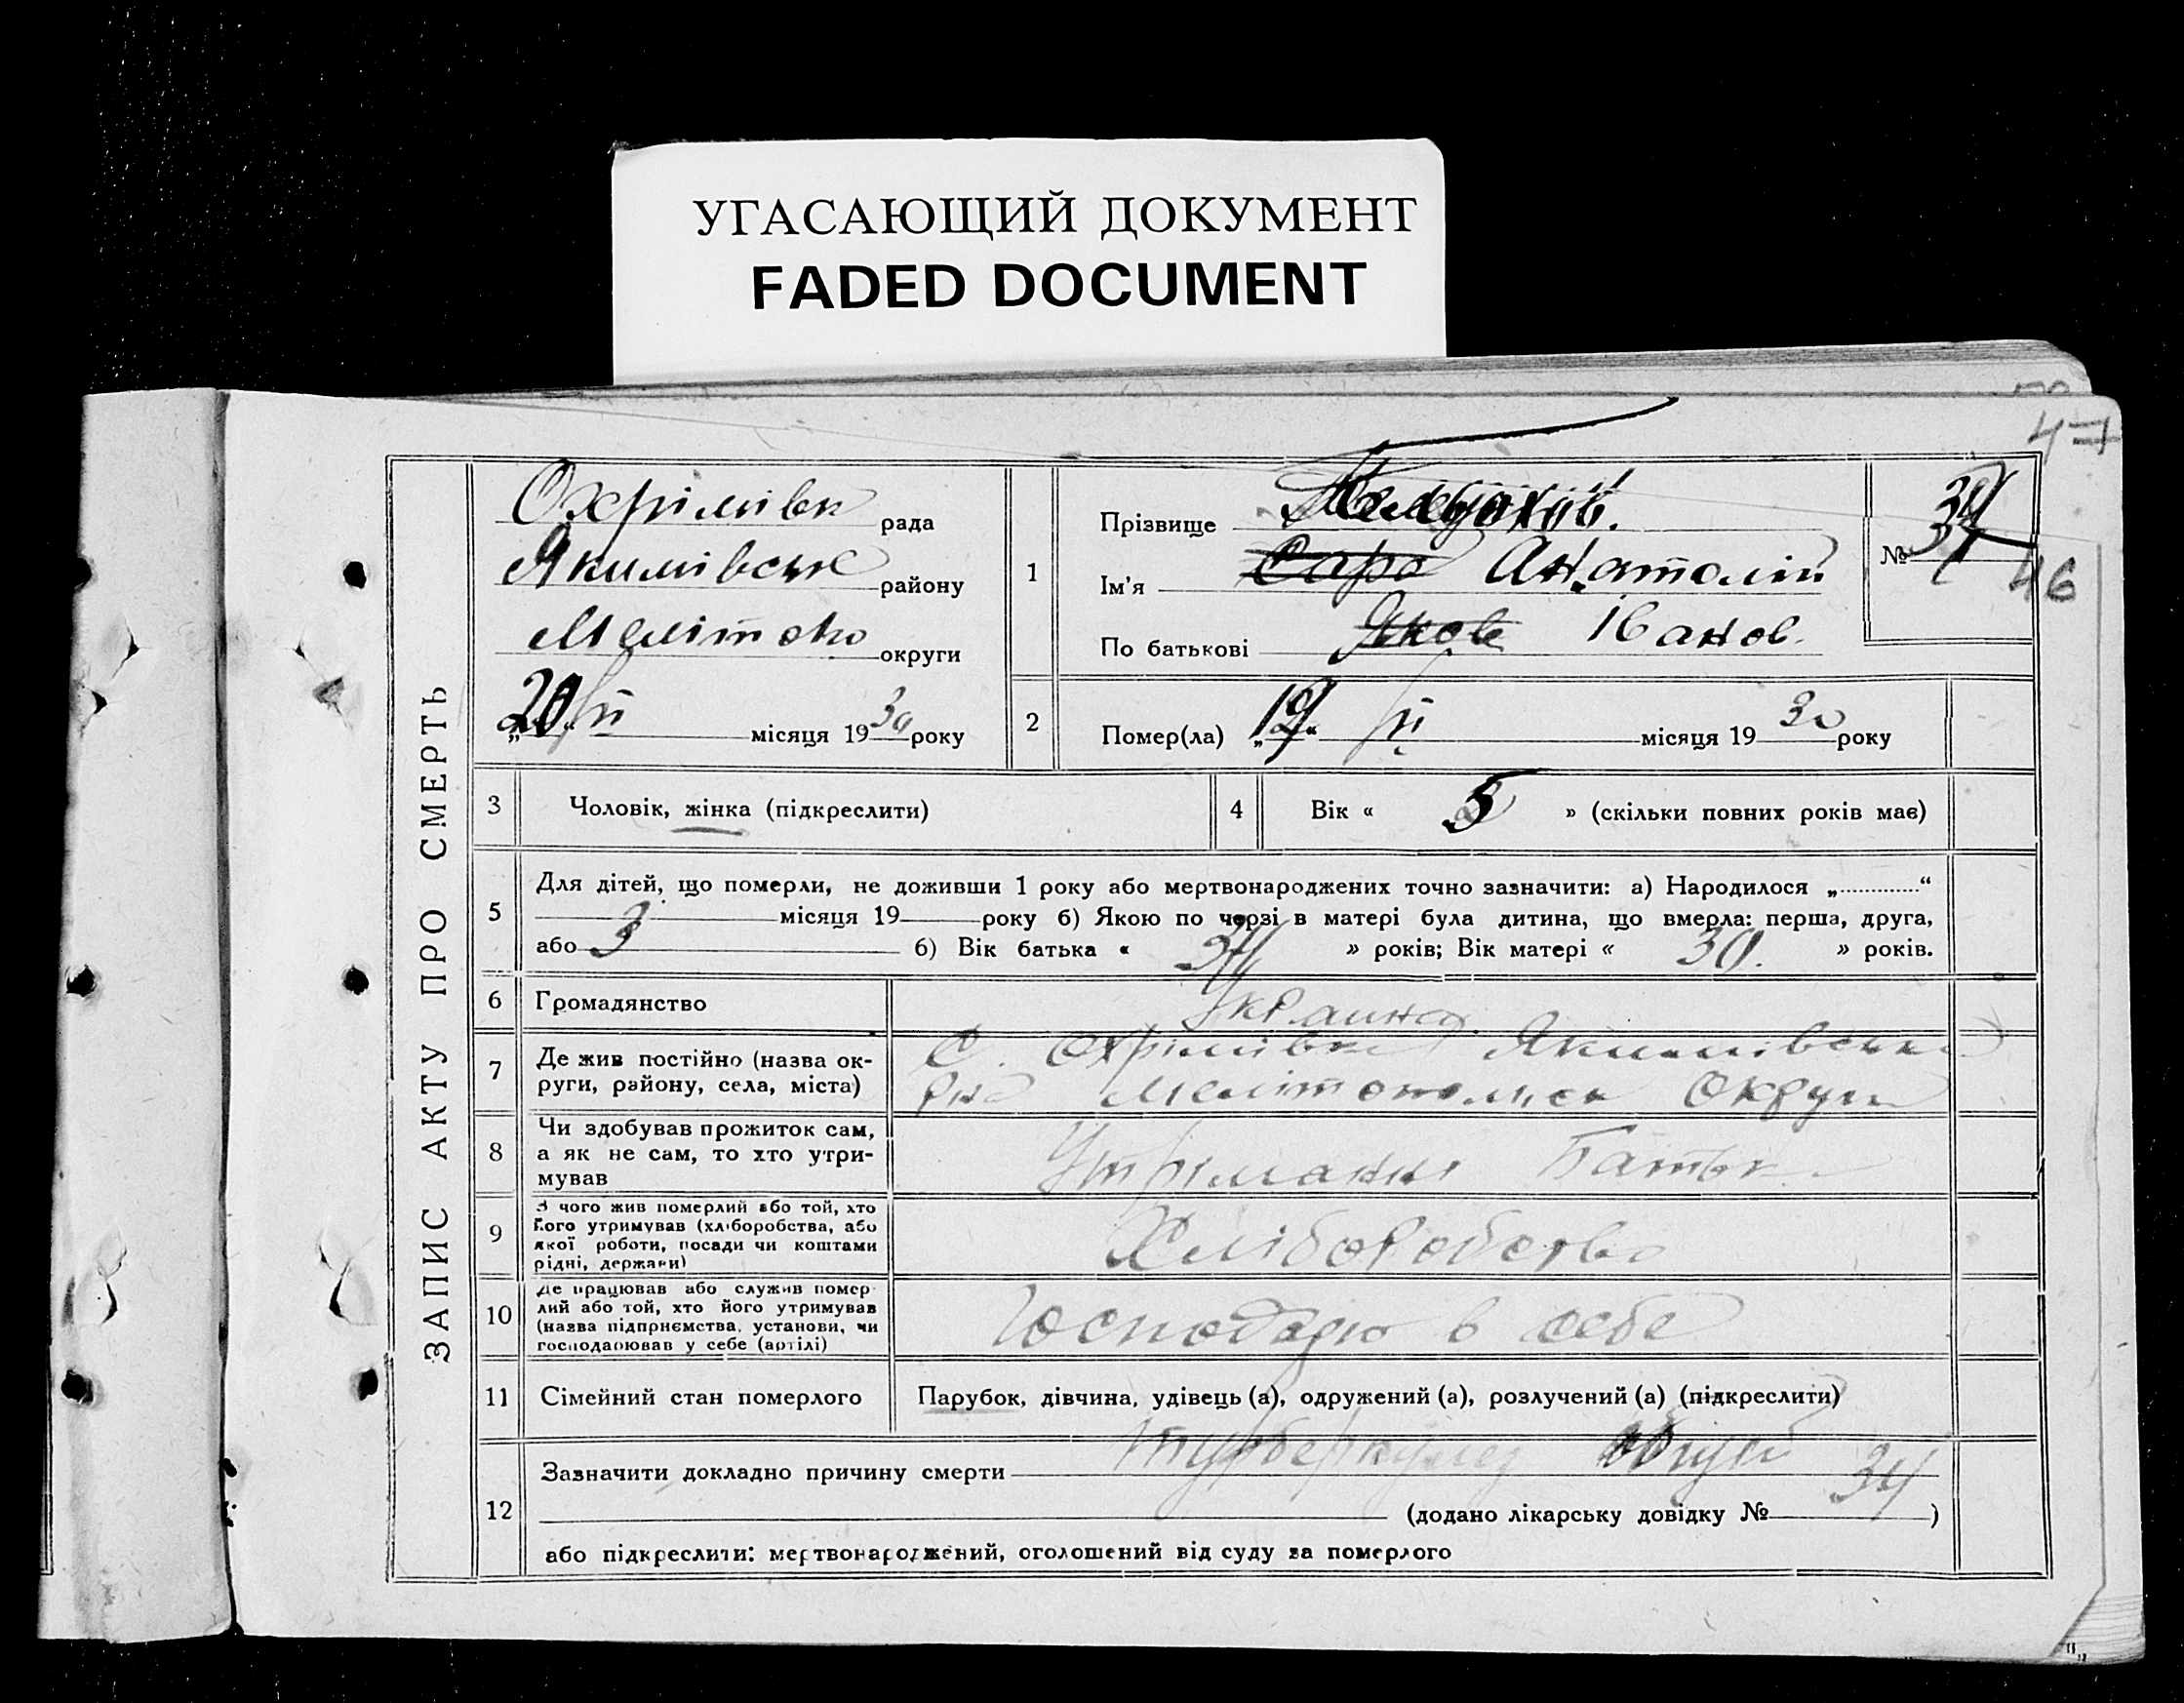 УГАСАЮЩИЙ ДОКУМЕНТ
FADED DOCUMENT
47
ЗАПИС АКТУ ПРО СМЕРТЬ
Охрімівк рада
Якимівськ району
округи
„20“ VI місяця 1930 року
1
Прізвище
Ім'я Сара Анатолій
По батькові Яков Іванов.
№
46
2
Помер(ла) „19“ VI місяця 1930 року
3
Чоловік, жінка (підкреслити)
4
Вік « 5 » (скільки повних років має)
5
Для дітей, що померли, не доживши 1 року або мертвонароджених точно зазначити: а) Народилося „............“
місяця 19 року б) Якою по черзі в матері була дитина, що вмерла: перша, друга,
або 3 б) Вік батька « 34 » років; Вік матері « 30. » років.
6
Громадянство
Украина
7
Де жив постійно (назва ок-
руги, району, села, міста)
С. Охрімівка Якимівськ
рна Мелітопольск Округи
8
Чи здобував прожиток сам,
а як не сам, то хто утри-
мував
Утріманні Батьк
9
З чого жив померлий або той, хто
його утримував (хліборобства, або
якої роботи, посади чи коштами
рідні, держави)
Хліборобство
10
Де працював або служив помер-
лий або той, хто його утримував
(назва підприємства, установи, чи
господарював у себе (артілі)
Господарю в себе
11
Сімейний стан померлого
Парубок, дівчина, удівець (а), одружений (а), розлучений (а) (підкреслити)
12
Зазначити докладно причину смерти
(додано лікарську довідку № 34 )
або підкреслити: мертвонароджений, оголошений від суду за померлого